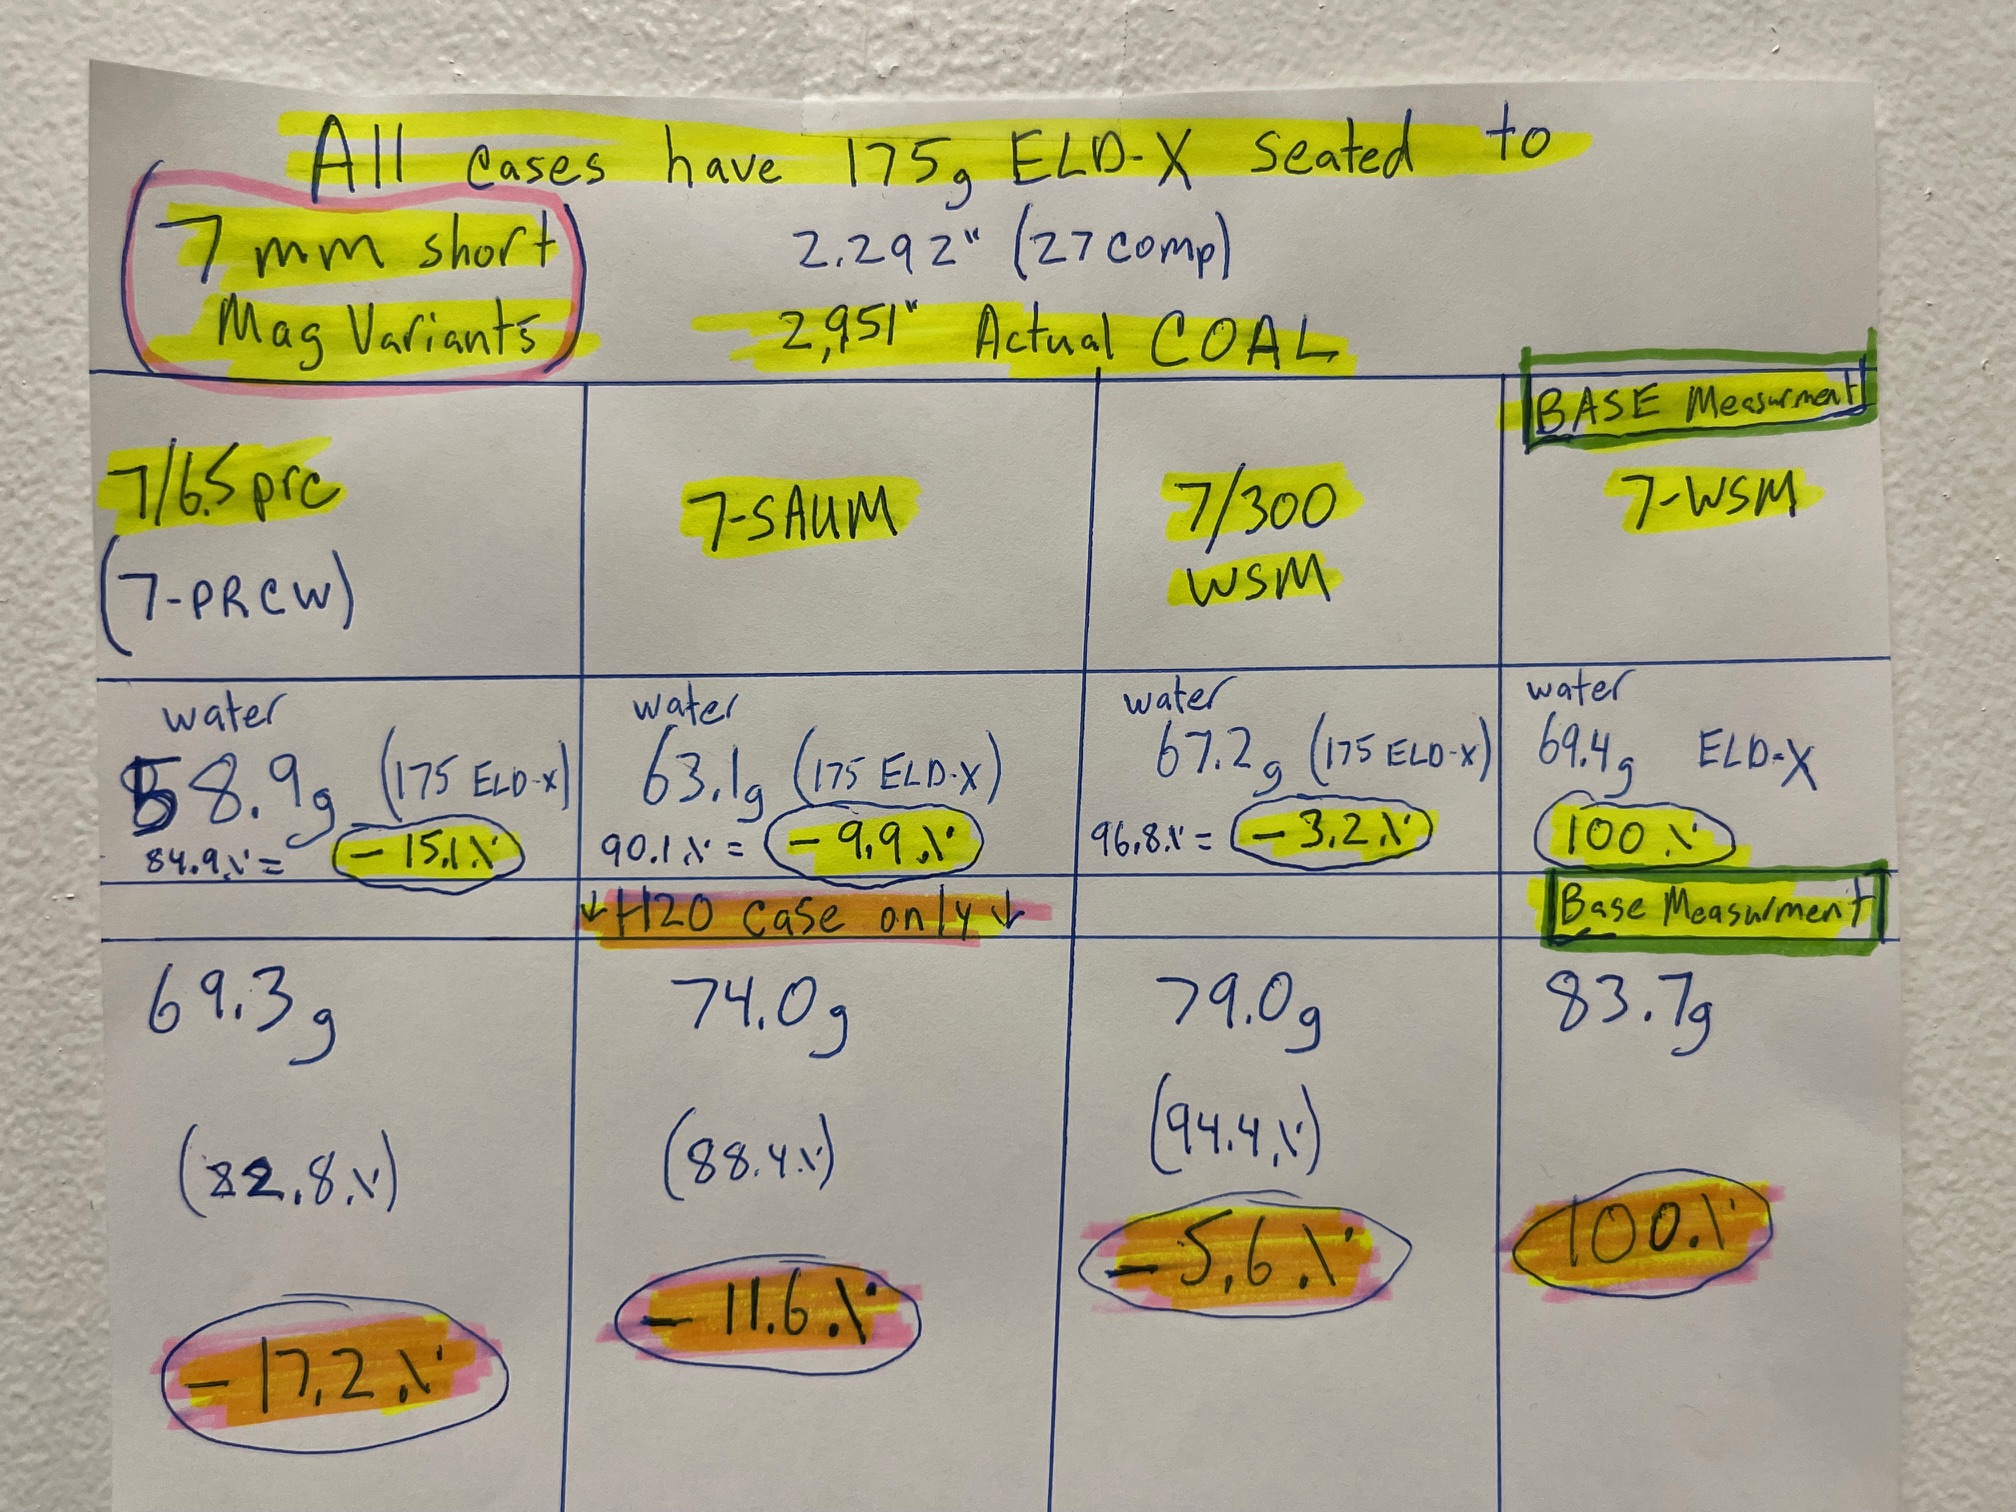 All cases have 175g ELD-X seated to
7mm short
Mag Variants
2.292" (27 comp)
2,951" Actual COAL
BASE Measurment
7/6.5 prc
(7-PRCW)
7-SAUM
7/300
WSM
7-WSM
water
58.9g (175 ELD-X)
84.9% = -15.1%
water
63.1g (175 ELD-X)
90.1% = -9.9%
water
67.2g (175 ELD-X)
96.8% = -3.2%
water
69.4g ELD-X
100%
↓ H20 case only ↓
Base Measurment
69.3g
(82.8%)
-17.2%
74.0g
(88.4%)
-11.6%
79.0g
(94.4%)
-5.6%
83.7g
100%